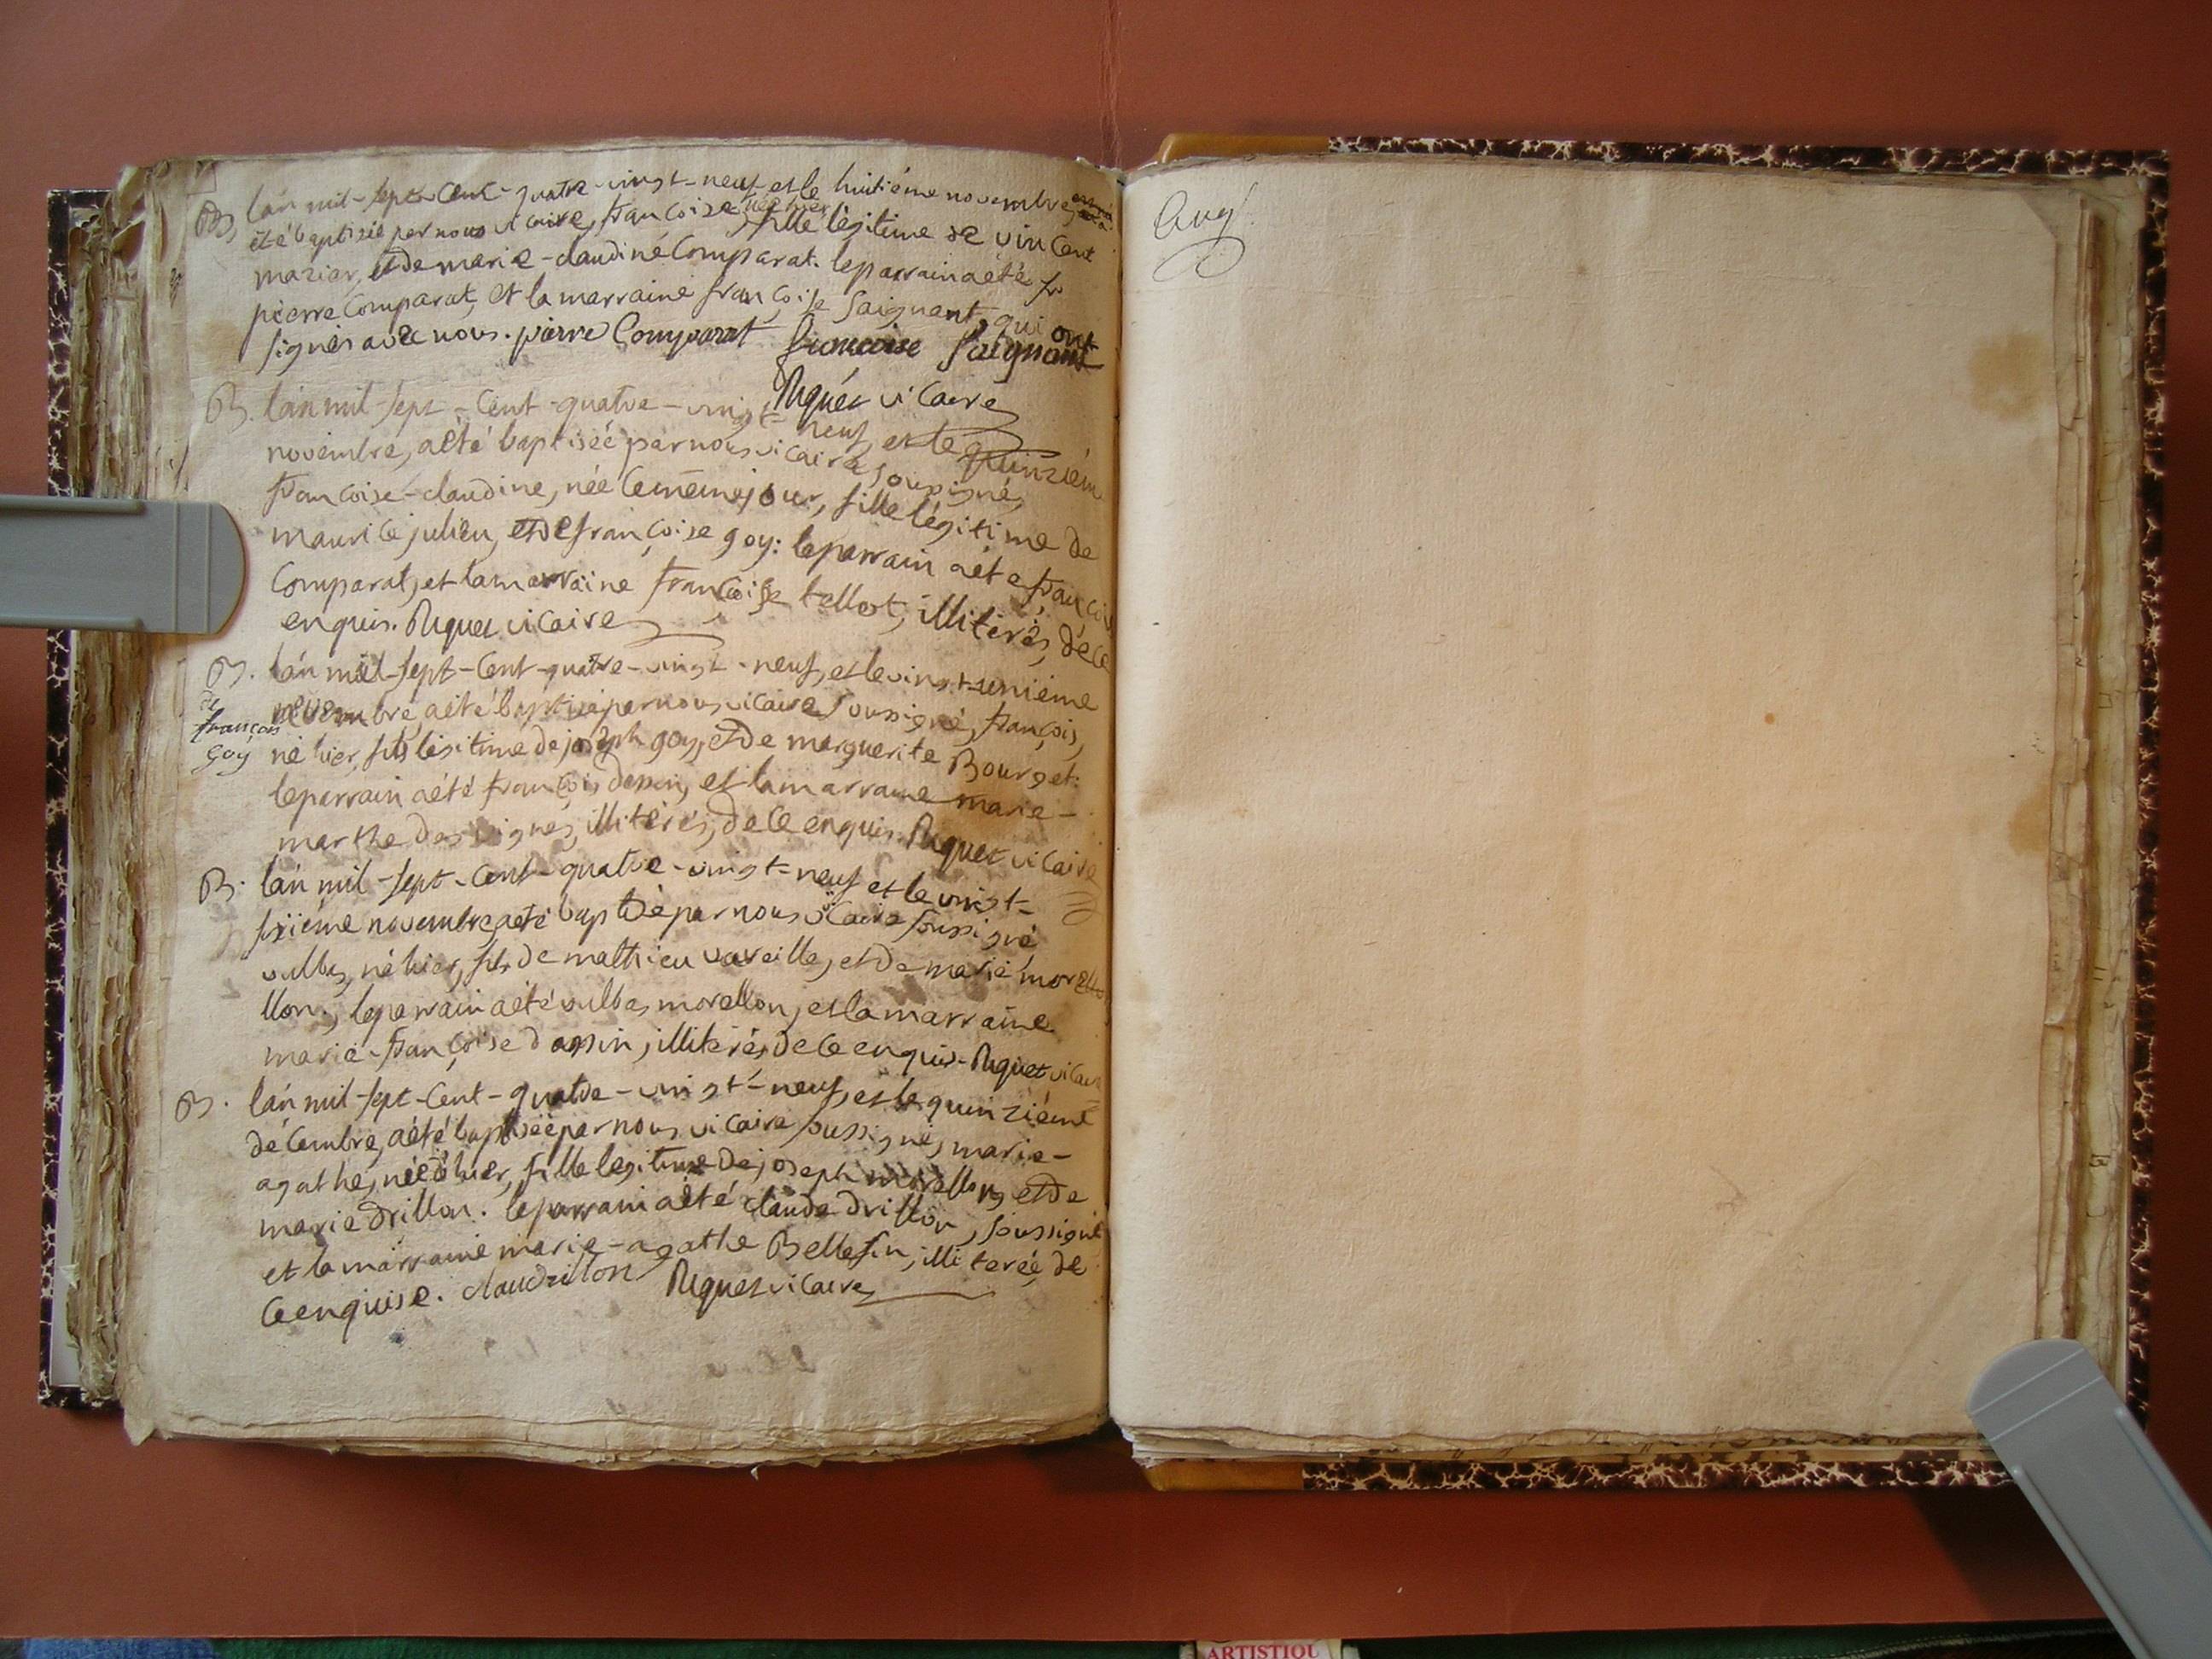 B. lán mil-sept-cent-quatre-vingt-neuf et le huitiéme novembre, a
été baptisée par nous vicaire, francoise née hier, fille légitime de vincent
mazier, et de marie-claudine Comparat. le parrain a été
pierre Comparat, et la marraine françoise saignant, qui ont
signés avec nous. pierre Comparat francoise saignant
Riquet vicaire
B. lán mil-sept-cent-quatre-vingt-neuf, et le quinziém
novembre, a été baptisée par nous vicaire soussigné,
francoise-claudine, née le méme jour, fille légitime de
maurice julien, et de françoise goy: le parrain a été françois
Comparat, et la marraine françoise tellot, illiterés, de ce
enquis. Riquet vicaire
B. lán mil-sept-cent-quatre-vingt-neuf, et le vingt-uniéme
de
novembre, a été baptisé par nous vicaire soussigné, françois,
françois
né hier, fils légitime de joseph goy, et de marguerite Bourget:
goy
le parrain a été françois dapin, et la marraine marie-
marthe des vignes, illiterés, de ce enquis. Riquet vicaire
B. lán mil-sept-cent-quatre-vingt-neuf et le vingt-
sixiéme novembre, a été baptisé par nous vicaire soussigné
vulbas, né hier, fils de mathieu vareille, et de marie more
llon, le parrain a été vulbas morellon, et la marraine
marie-françoise dapin, illiterés, de ce enquis. Riquet vicaire
B. lán mil-sept-cent-quatre-vingt-neuf, et le quinziéme
décembre, a été baptisée par nous vicaire soussigné, marie-
agathe, née d'hier, fille legitime de joseph morellon, et de
marie drillon. le parrain a été claude drillon, soussigné
et la marraine marie-agathe Bellefin, illiterée, de
ce enquise. claudrillon Riquet vicaire
Aug
ARTISTIQU